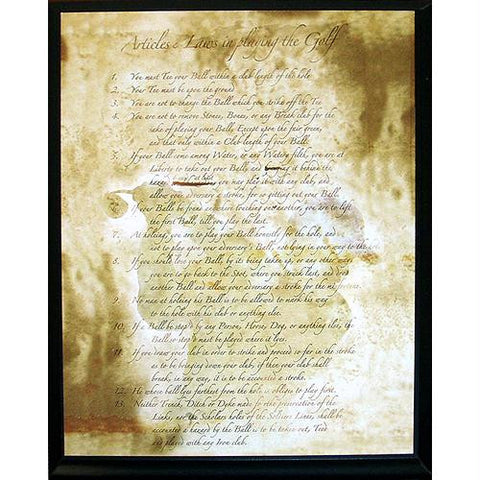 Articles & Laws in playing the Golf
1. You must Tee your Ball within a club length of the hole
2. Your Tee must be upon the ground
3. You are not to change the Ball which you strike off the Tee
4. You are not to remove Stones, Bones, or any Break club for the
sake of playing your Ball, Except upon the fair green,
and that only within a Club length of your Ball.
5. If your Ball come among Water, or any Watery filth, you are at
Liberty to take out your Ball, and it behind the
you may play it with any club, and
allow your adversary a stroke, for so getting out your Ball.
your Balls be found anywhere touching one another, you are to lift
the first Ball, till you play the last.
7. At holeing, you are to play your Ball honestly for the hole, and
not to play upon your adversary's Ball, not lying in your way to the
8. If you should lose your Ball, by its being taken up, or any other way
you are to go back to the Spot, where you struck last, and drop
another Ball and allow your adversary a stroke for the misfortune
9. No man at holeing his Ball is to be allowed to mark his way
to the hole with his club or anything else.
10. If a Ball be stop'd by any Person, Horse, Dog, or anything else, the
Ball so stop'd must be played where it lyes.
11. If you draw your club in order to strike and proceed so far in the stroke
as to be bringing down your club, if then your club shall
break, in any way, it is to be accounted a stroke.
12. He whose ball lyes farthest from the hole is obliged to play first.
13. Neither Trench, Ditch or Dyke made for the preservation of the
Links, nor the Scholars holes or the Soldiers Lines, shall be
accounted a hazard by the Ball is to be taken out, Teed
and played with any Iron club.